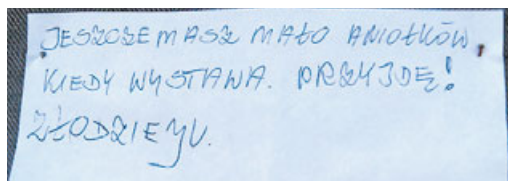 JESZCZE MASZ MAŁO ANIOŁKÓW,
KIEDY WYSTAWA. PRZYJDĘ!
ZŁODZIEJU.